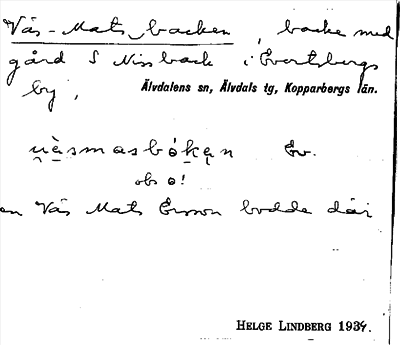 Vås-Mats backen, backe med
gård S Nissback i Evertsbergs
by,
Älvdalens sn, Älvdals tg, Kopparbergs län.
u̯ȧ̀smasbók̯ę̯n Ev.
obs o!
en Vås Mats Ersson bodde där
HELGE LINDBERG 1934.